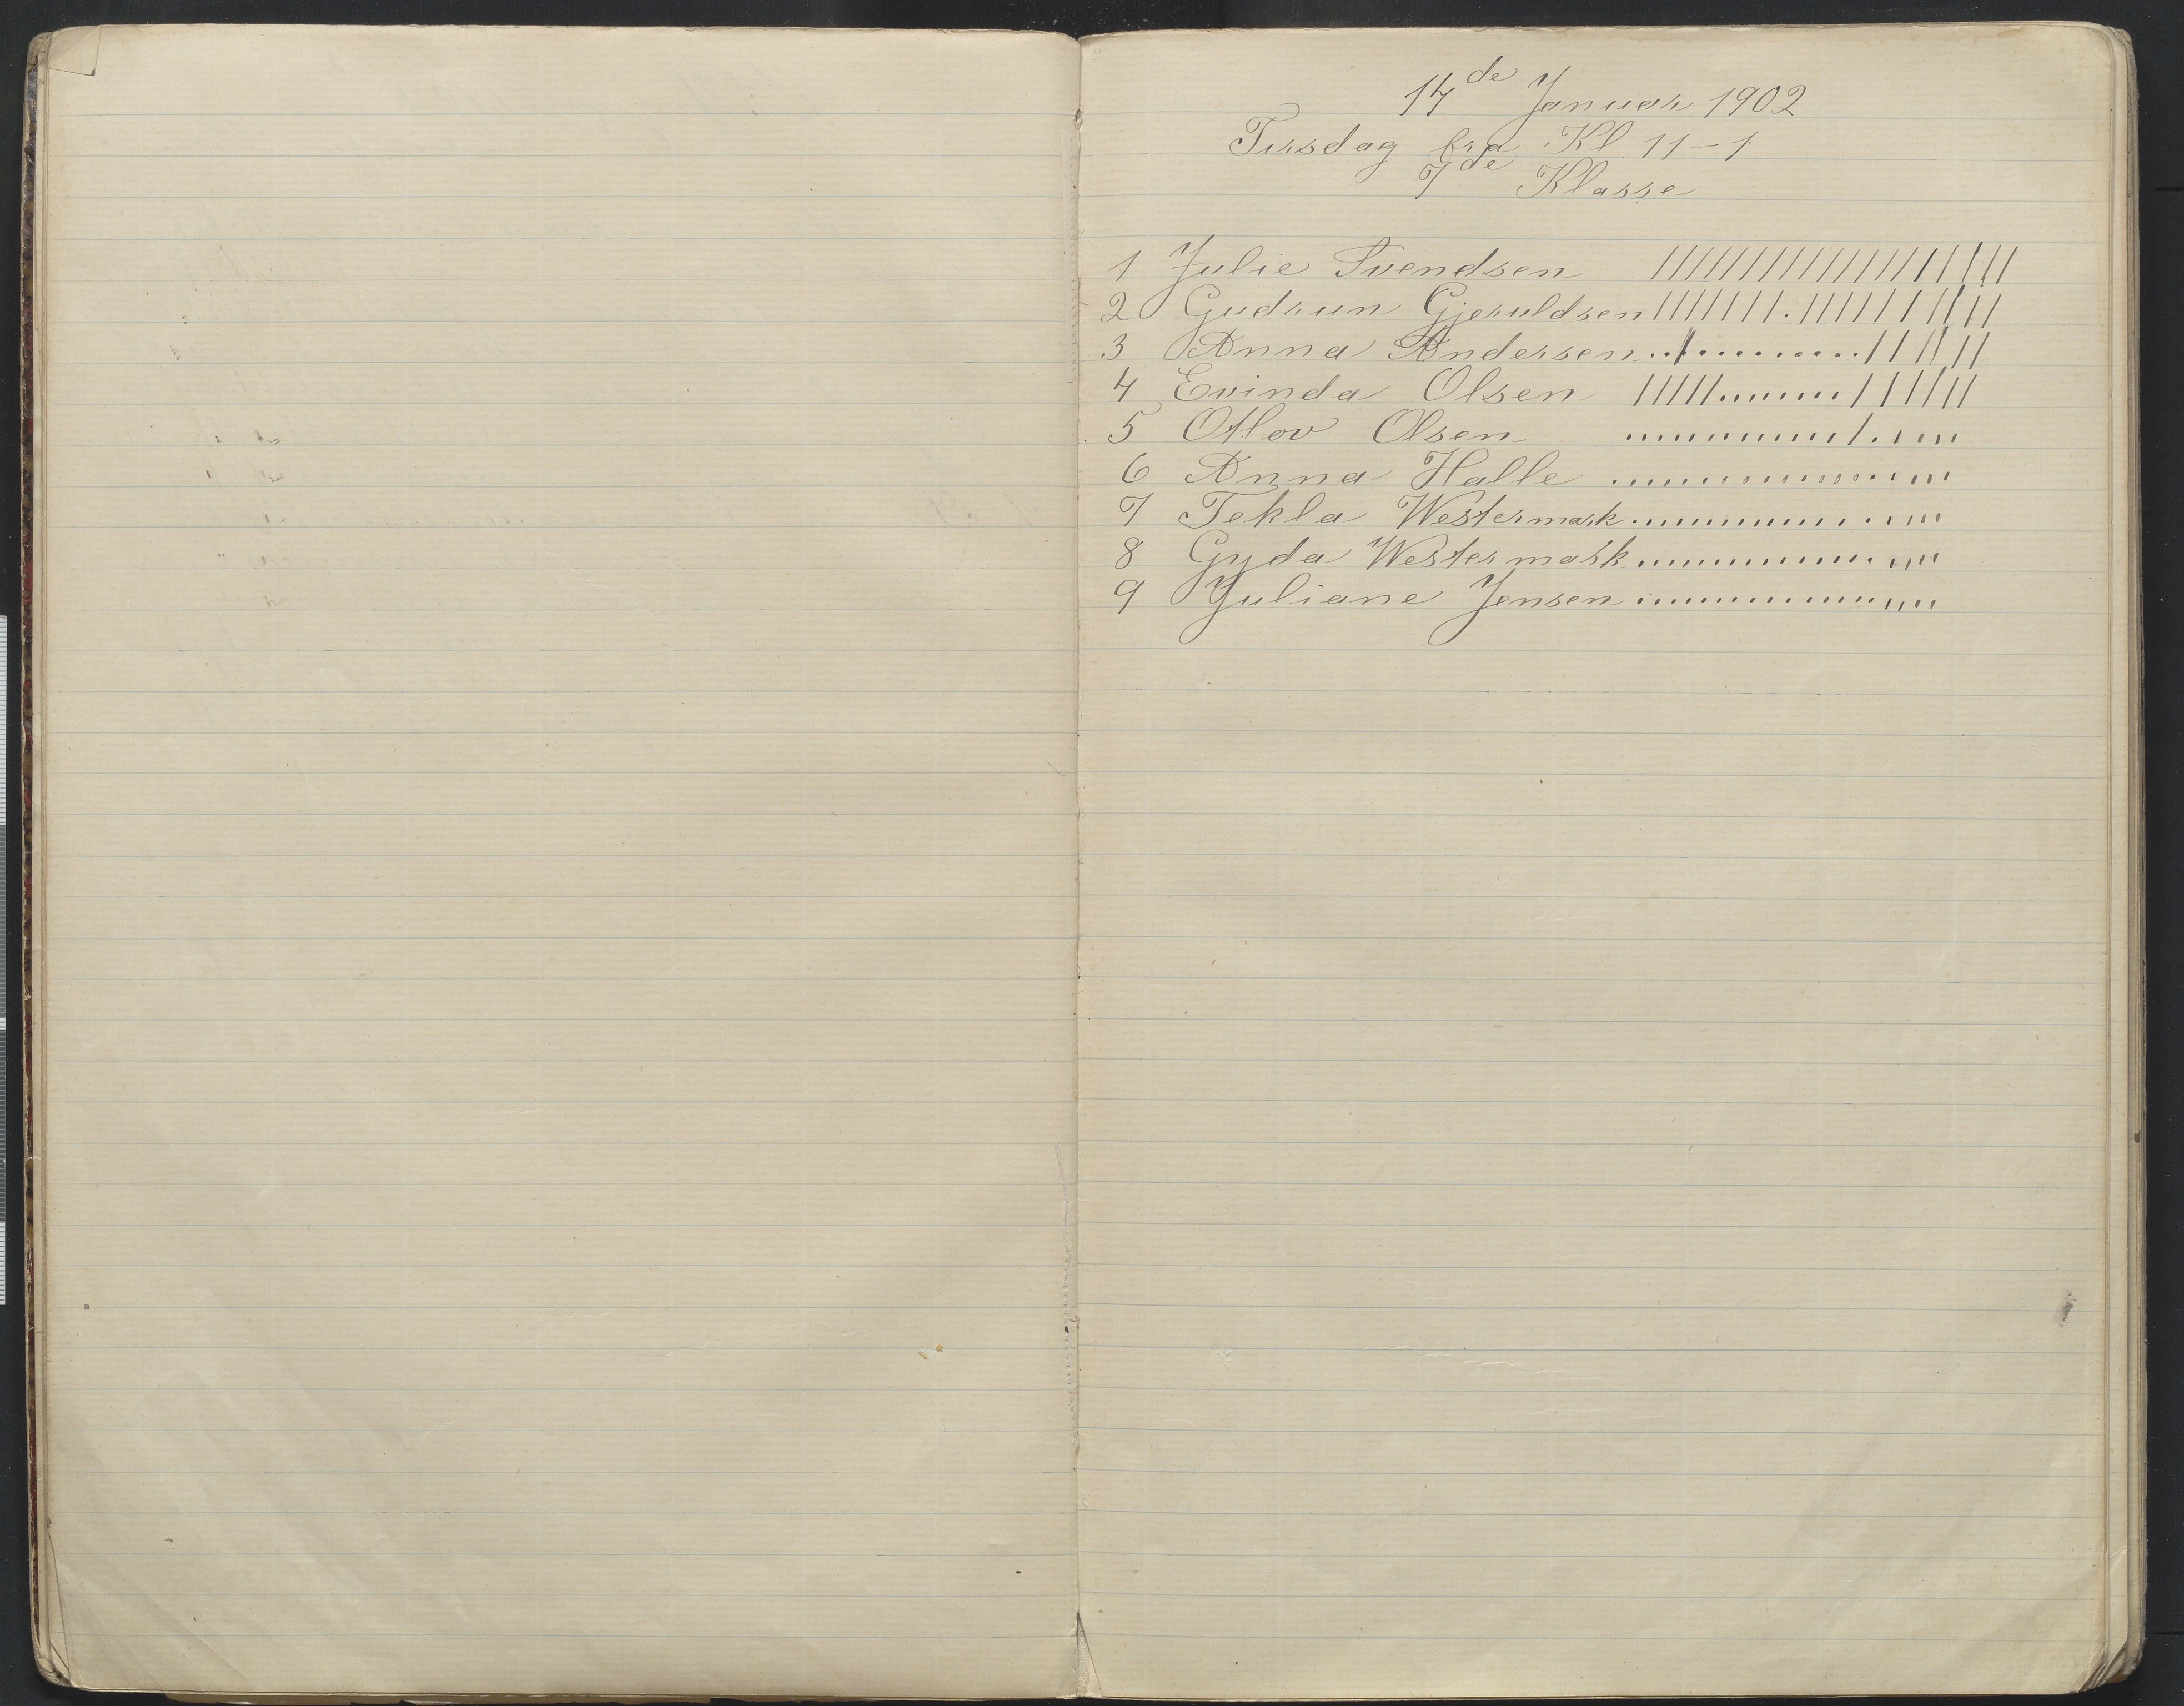 14de Januar 1902
Tirsdag fra Kl 11-1
7de Klasse
1 Julie Svendsen ////////////////////
2 Gudrun Gjeruldsen ///////.///////////
3 Anna Andersen ../............//////
4 Evinda Olsen /////........///////
5 Otlov Olsen ............/.....
6 Anna Halle ...................
7 Tekla Westermark .................
8 Gyda Westermark .................
9 Juliane Jensen .................